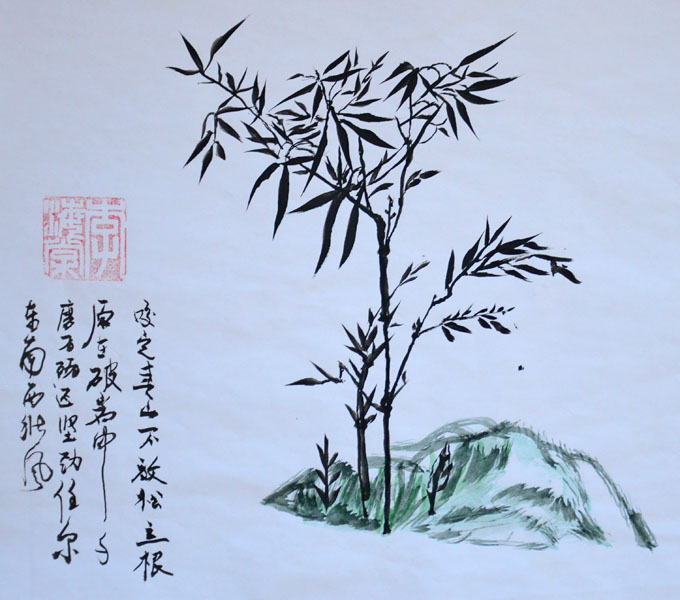 咬定青山不放松立根
原在破岩中千
磨万砺还坚劲任尔
东南西北风